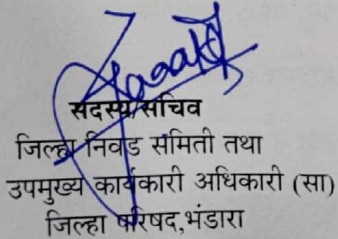 सदस्य/सचिव
जिल्हा निवड समिती तथा
उपमुख्य कार्यकारी अधिकारी (सा)
जिल्हा परिषद,भंडारा